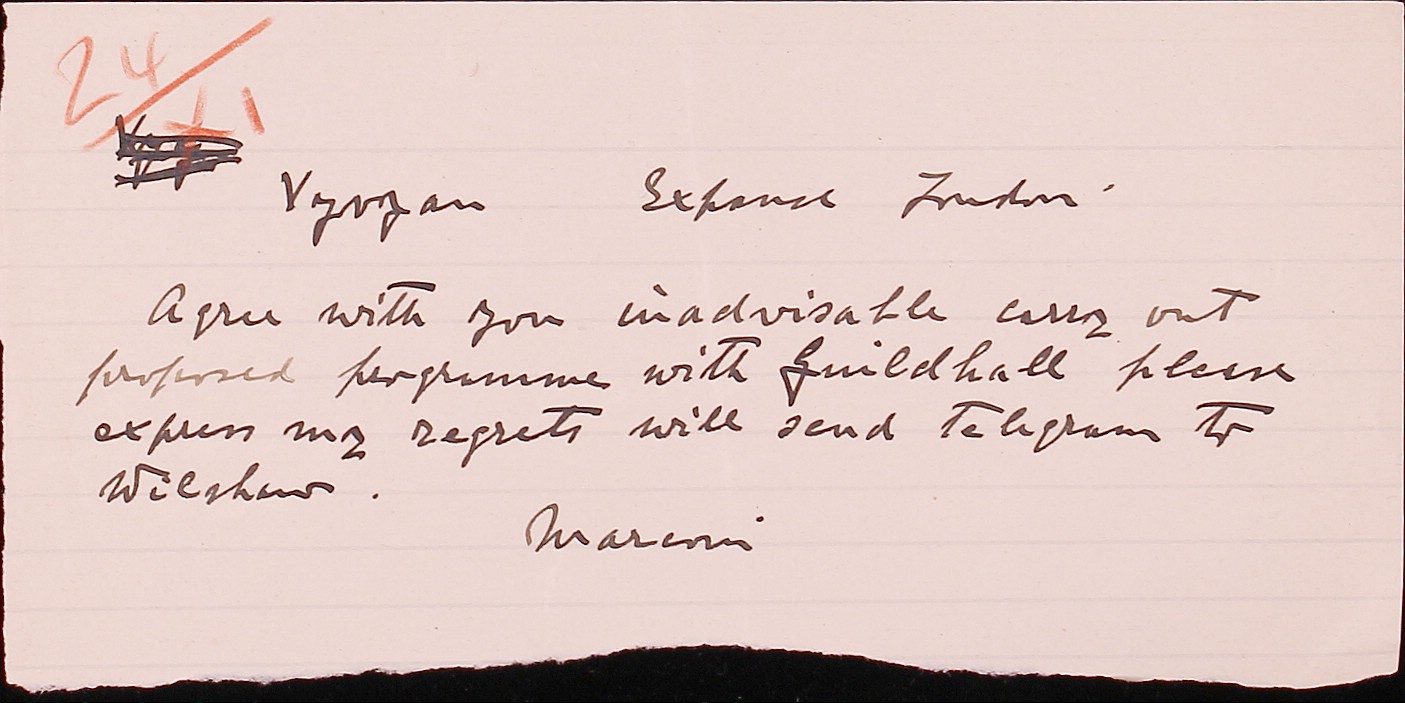 24/XI
Vyvyan Expanse London
Agree with you inadvisable carry out
proposed programme with Guildhall please
express my regrets will send telegram to
Wilshaw.
Marconi